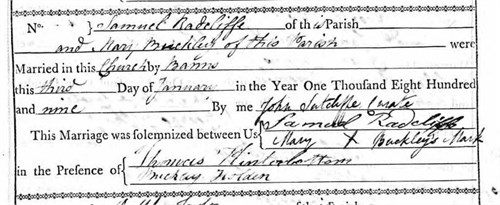 No. } Samuel Radcliffe of this Parish
and Mary Buckley of this Parish were
Married in this Church by Banns
this third Day of January in the Year One Thousand Eight Hundred
and nine By me John Sutcliffe Curate
This Marriage was solemnized between Us { Samuel Radcliffe
Mary X Buckley's Mark
in the Presence of { Hinlobottom
Buckley Holden